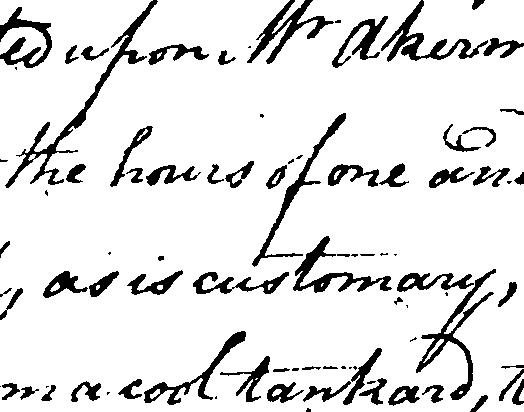 ted upon Mr Akerm
the hours of one and
, as is customary,
m a cool tankard, t